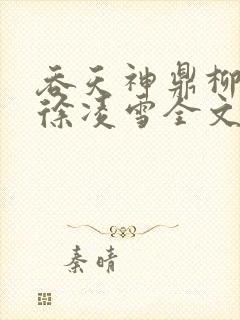 吞天神鼎柳
徐凌雪全文
秦晴